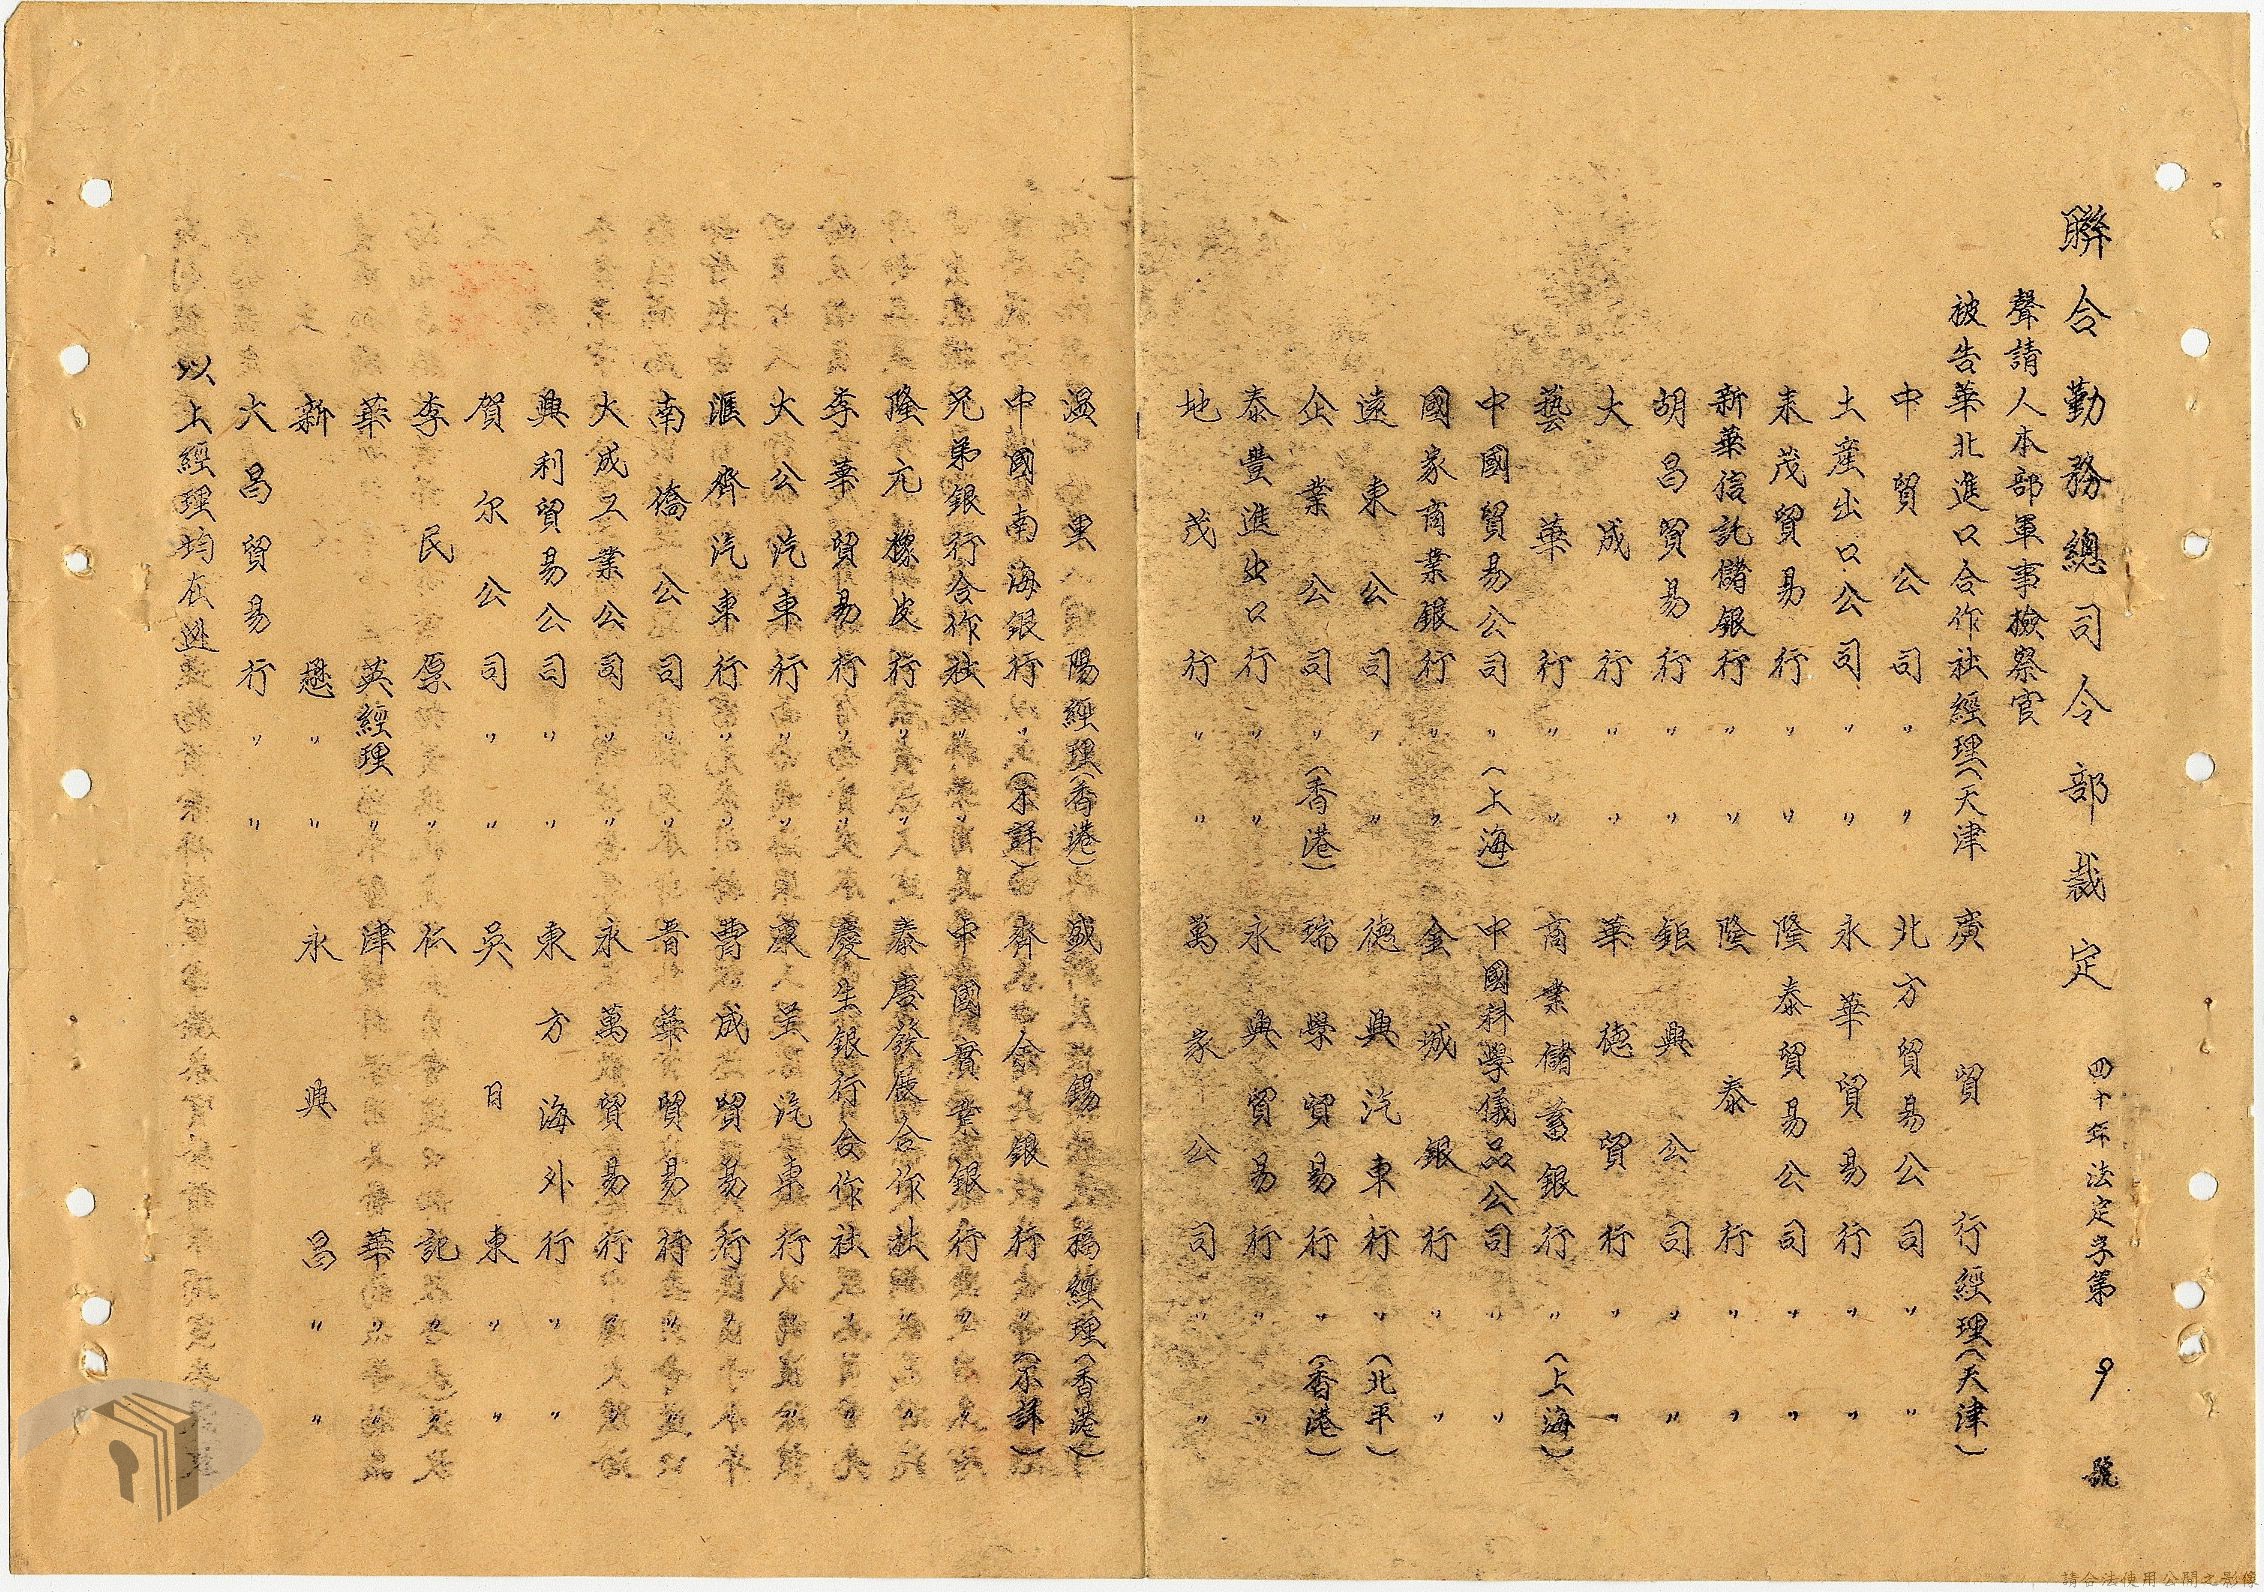 聯合勤務總司令部裁定 四十年法定字第 9 號
聲請人本部軍事檢察官
被告華北進口合作社經理(天津 廣貿行經理(天津)
中貿公司〃〃 北方貿易公司〃〃
土産出口公司〃〃 永華貿易行〃〃
未茂貿易行〃〃 隆泰貿易公司〃〃
新華信託儲銀行〃〃 隆泰行〃〃
胡昌貿易行〃〃 鉅興公司〃〃
大成行〃〃 華德貿行〃〃
藝華行〃〃 商業儲蓄銀行〃(上海)
中國貿易公司〃(上海) 中國科學儀品公司〃〃
國家商業銀行〃〃 金城銀行〃〃
遠東公司〃〃 德興汽車行〃(北平)
企業公司〃(香港) 瑞學貿易行〃(香港)
泰豐進出口行〃〃 永興貿易行〃〃
地茂行〃〃 萬家公司〃〃
溫里陽經理(香港) 盛錫福經理(香港)
中國南海銀行〃(不詳) 齊合銀行〃(不詳)
兄弟銀行合作社〃〃 中國實業銀行〃〃
隆元橡皮行〃〃 泰唐發儉合作社〃〃
李華貿易行〃〃 慶生銀行合作社〃〃
大公汽車行〃〃 康呈汽車行〃〃
滙齊汽車行〃〃 曹成貿易行〃〃
南僑公司〃〃 晋華貿易行〃〃
大成工業公司〃〃 永萬貿易行〃〃
興利貿易公司〃〃 東方海外行〃〃
賀尔公司〃〃 吳日東〃〃
李民原〃〃 仁記〃〃
華英經理〃 津華〃〃
新懋〃〃 永興昌〃〃
大昌貿易行〃〃
以上經理均在逃
請合法使用公開之影像